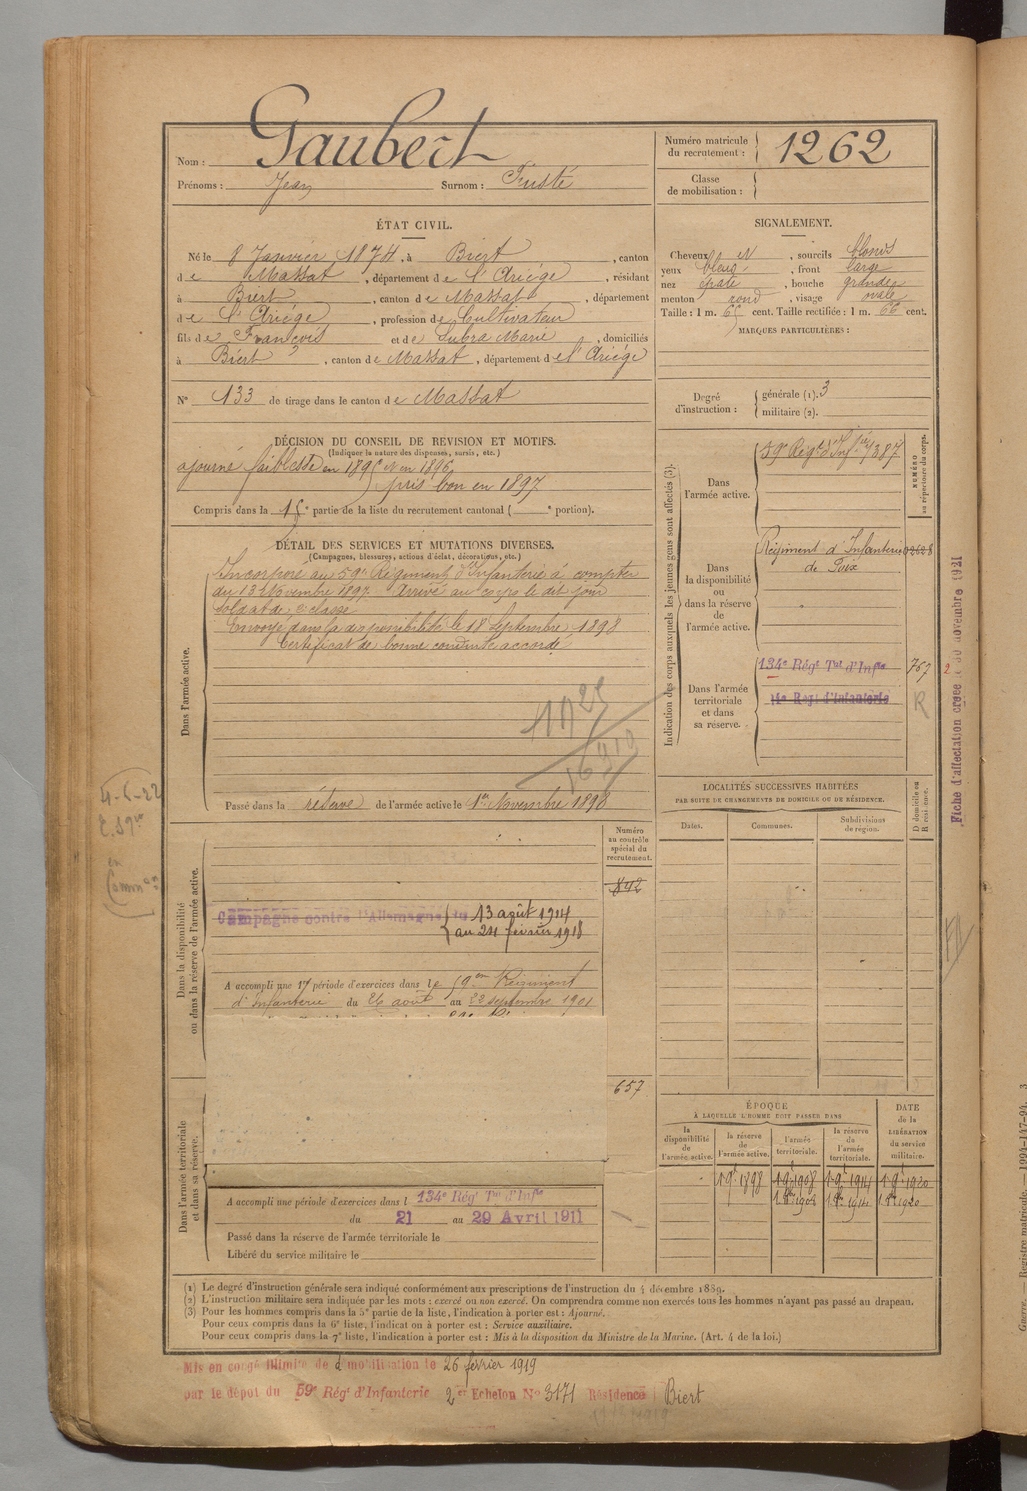 Nom : Gaubert
Prénoms : Jean Surnom : Fusté
Numéro matricule
du recrutement : 1262
Classe
de mobilisation :
ÉTAT CIVIL.
Né le 8 Janvier 1874, à Biert, canton
de Massat, département de l'Ariège, résidant
à Biert, canton de Massat, département
de l'Ariège, profession de Cultivateur
fils de François et de Subra Marie, domiciliés
à Biert, canton de Massat, département de l'Ariège
N° 133 de tirage dans le canton de Massat
SIGNALEMENT.
Cheveux et, sourcils blonds
yeux bleus, front large
nez épaté, bouche grande
menton rond, visage ovale
Taille : 1 m. 65 cent. Taille rectifiée : 1 m. 66 cent.
MARQUES PARTICULIÈRES :
Degré
d'instruction :
générale (1). 3
militaire (2).
DÉCISION DU CONSEIL DE RÉVISION ET MOTIFS.
(Indiquer la nature des dispenses, sursis, etc.)
ajourné faiblesse en 1895 et en 1896
pris bon en 1897
Compris dans la 1e partie de la liste du recrutement cantonal ( e portion).
DÉTAIL DES SERVICES ET MUTATIONS DIVERSES.
(Campagnes, blessures, actions d'éclat, décorations, etc.)
Dans l'armée active.
Incorporé au 59e Régiment d'Infanterie à compter
du 13 Novembre 1897. Arrivé au corps le dit jour
soldat de 2e classe
Envoyé dans la disponibilité le 18 Septembre 1898
Certificat de bonne conduite accordé
1925
16310
Passé dans la réserve de l'armée active le 1er Novembre 1898
Indication des corps auxquels les jeunes gens sont affectés (3).
NUMÉRO
au répertoire du corps.
Dans
l'armée active.
59e Régt d'Infie 4387
Dans
la disponibilité
ou
dans la réserve
de
l'armée active.
Régiment d'Infanterie
de Foix
Dans l'armée
territoriale
et dans
sa réserve.
134e Régt Tal d'Infie 767
14e Regt d'Infanterie
R
2
Fiche d'affectation créée le 30 novembre 1921
LOCALITÉS SUCCESSIVES HABITÉES
PAR SUITE DE CHANGEMENTS DE DOMICILE OU DE RÉSIDENCE.
Dates. Communes. Subdivisions
de région.
D domicile ou
R résidence.
4-6-22
en
Dans la disponibilité
ou dans la réserve de l'armée active.
Numéro
au contrôle
spécial du
recrutement.
842
Campagne contre l'Allemagne du 13 août 1914
au 24 février 1918
A accompli une 1re période d'exercices dans le 59e Régiment
d'Infanterie du 26 août au 22 septembre 1901
657
Dans l'armée territoriale
et dans sa réserve.
A accompli une période d'exercices dans l 134e Régt Tal d'Infie
du 21 au 29 Avril 1911
Passé dans la réserve de l'armée territoriale le
Libéré du service militaire le
ÉPOQUE
À LAQUELLE L'HOMME DOIT PASSER DANS
DATE
de la
LIBÉRATION
du service
militaire.
la
disponibilité
de
l'armée active.
la réserve
de
l'armée active.
l'armée
territoriale.
la réserve
de
l'armée
territoriale.
1 9bre 1898 1 9bre 1908 1 9bre 1914 1 9bre 1920
(1) Le degré d'instruction générale sera indiqué conformément aux prescriptions de l'instruction du 4 décembre 1889.
(2) L'instruction militaire sera indiquée par les mots : exercé ou non exercé. On comprendra comme non exercés tous les hommes n'ayant pas passé au drapeau.
(3) Pour les hommes compris dans la 5e partie de la liste, l'indication à porter est : Ajourné.
Pour ceux compris dans la 6e liste, l'indication à porter est : Service auxiliaire.
Pour ceux compris dans la 7e liste, l'indication à porter est : Mis à la disposition du Ministre de la Marine. (Art. 4 de la loi.)
Mis en congé illimité de démobilisation le 26 février 1919
par le dépôt du 59e Régt d'Infanterie 2e Echelon No 3171 Résidence : Biert
Registre matricule. — 1994-147-94. 3